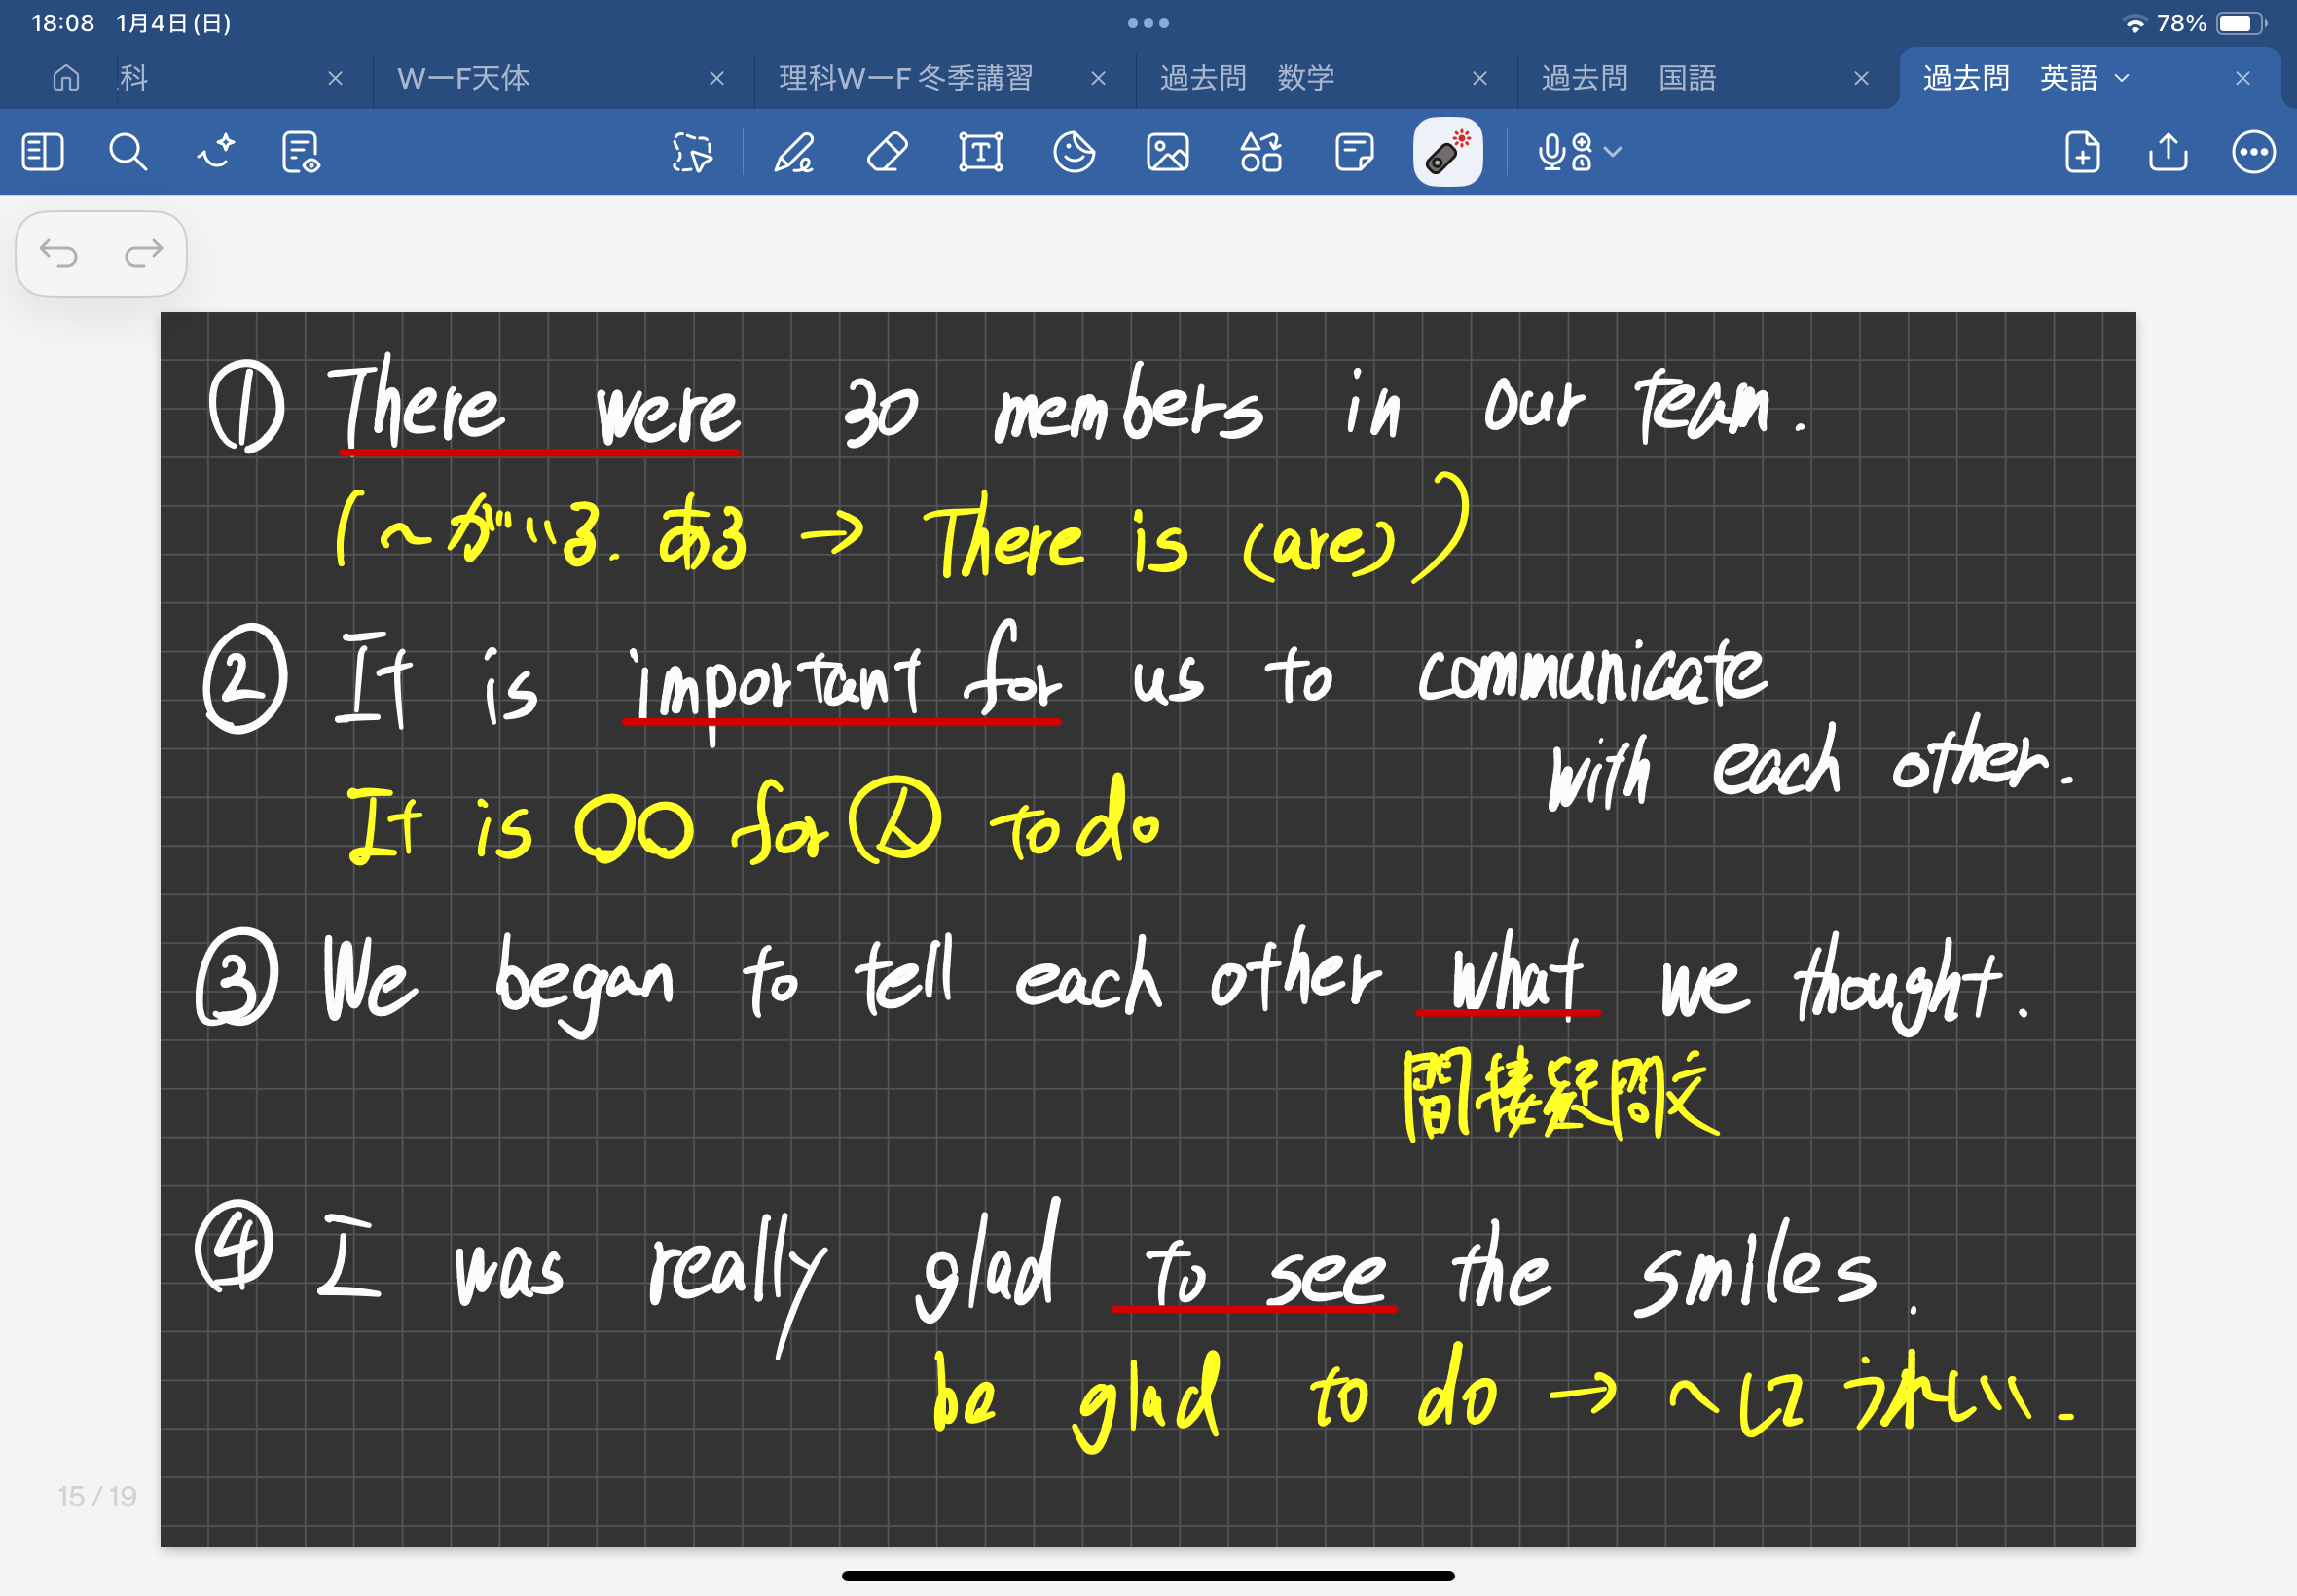 18:08 1月4日(日) 78%
科 W－F天体 理科W－F 冬季講習 過去問 数学 過去問 国語 過去問 英語
① There were 30 members in our team.
(～がいる. ある → There is (are))
② It is important for us to communicate
with each other.
It is ○○ for 人 to do
③ We began to tell each other what we thought.
間接疑問文
④ I was really glad to see the smiles.
be glad to do → ～してうれしい.
15 / 19